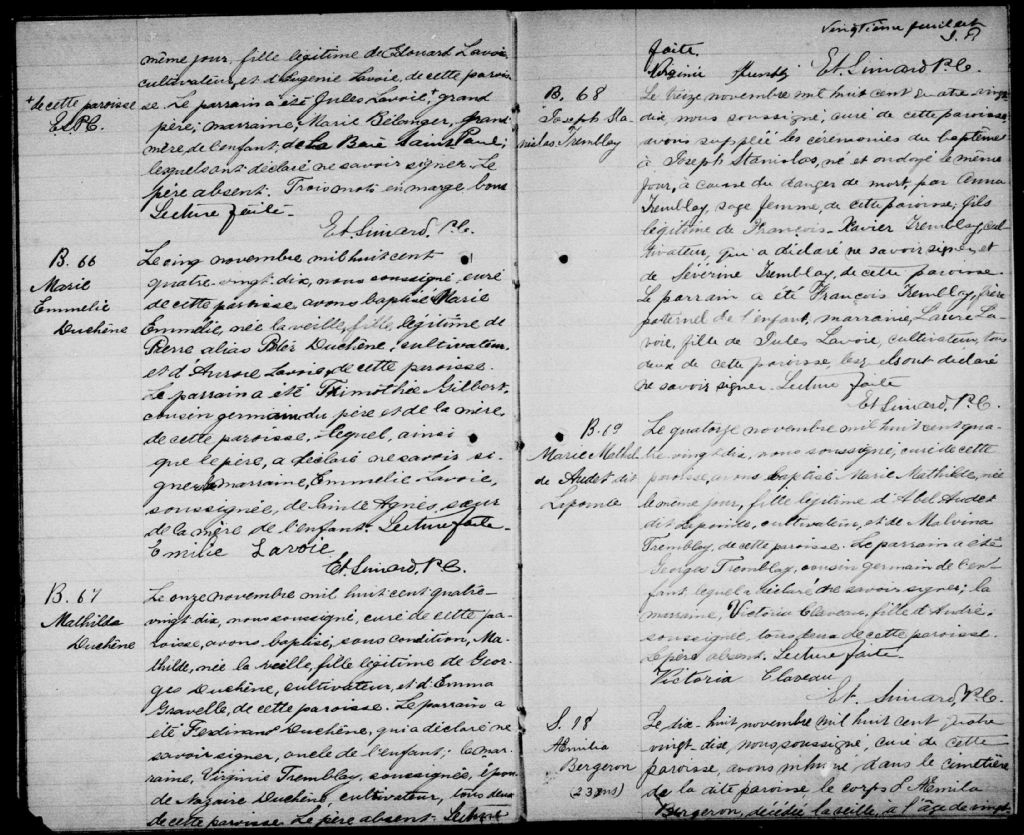 même jour, fille légitime de Edouard Lavoie
cultivateur, et d'Eugénie Lavoie, de cette parois-
+ de cette paroisse
E.S.P.C.
se. Le parrain a été Jules Lavoie,+ grand
père; marraine, Marie Bélanger, grand
mère de l'enfant, de La Baie Saint Paul;
lesquels ont déclaré ne savoir signer. Le
père absent. Trois mots en marge bons
Lecture faite.
Et. Simard, P.C.
B. 66
Marie
Emmelie
Duchêne
Le cinq novembre mil huit cent
quatre-vingt-dix, nous soussigné, curé
de cette paroisse, avons baptisé Marie
Emmélie, née la veille, fille légitime de
Pierre alias Duchêne, cultivateur,
et d'Aurore Lavoie, de cette paroisse.
Le parrain a été Thimothée Gilbert,
cousin germain du père et de la mère,
de cette paroisse, lequel, ainsi
que le père, a déclaré ne savoir si-
gner. La marraine, Emmelie Lavoie,
soussignée, de Sainte Agnès, sœur
de la mère de l'enfant. Lecture faite.
Emilie Lavoie
Et. Simard, P.C.
B. 67
Mathilda
Duchêne
Le onze novembre mil huit cent quatre-
vingt dix, nous soussigné, curé de cette pa-
roisse, avons baptisé, sous condition, Ma-
thilde, née la veille, fille légitime de Geor-
ges Duchêne, cultivateur, et d'Emma
Gravelle, de cette paroisse. Le parrain a
été Ferdinand Duchêne, qui a déclaré ne
savoir signer, oncle de l'enfant; la mar-
raine, Virginie Tremblay, soussignée, épou-
se de Nazaire Duchêne, cultivateur, tous deux
de cette paroisse. Le père absent. Lecture
Vingtième feuillet
faite.
Virginie Et. Simard P.C.
B. 68
Joseph Sta-
nislas Tremblay
Le treize novembre mil huit cent quatre vingt
dix, nous soussigné, curé de cette paroisse,
avons suppléé les cérémonies du baptême
à Joseph Stanislas, né et ondoyé le même
jour, à cause du danger de mort, par Anna
Tremblay, sage femme, de cette paroisse; fils
légitime de François-Xavier Tremblay, cul-
tivateur, qui a déclaré ne savoir signer, et
de Sévérine Tremblay, de cette paroisse.
Le parrain a été François Tremblay, frère
paternel de l'enfant, marraine, Laure La-
voie, fille de Jules Lavoie, cultivateur, tous
deux de cette paroisse, lesquels ont déclaré
ne savoir signer. Lecture faite
Et. Simard, P.C.
B. 69
Marie Mathil-
de Audet dit
Lapointe
Le quatorze novembre mil huit cent qua-
tre vingt dix, nous soussigné, curé de cette
paroisse, avons baptisé Marie Mathilde, née
le même jour, fille légitime d'Abel Audet
dit Lapointe, cultivateur, et de Malvina
Tremblay, de cette paroisse. Le parrain a été
Georges Tremblay, cousin germain de l'en-
fant lequel a déclaré ne savoir signer; la
marraine, Victoria Claveau, fille d'André,
soussignée, tous deux de cette paroisse.
Le père absent. Lecture faite
Victoria Claveau
Et. Simard, P.C.
S. 18
Aemilia
Bergeron
(23 ans)
Le dix-huit novembre mil huit cent quatre
vingt-dix, nous soussigné, curé de cette
paroisse, avons inhumé, dans le cimetière
de la dite paroisse le corps d'Aemilia
Bergeron, décédée la veille, à l'âge de vingt